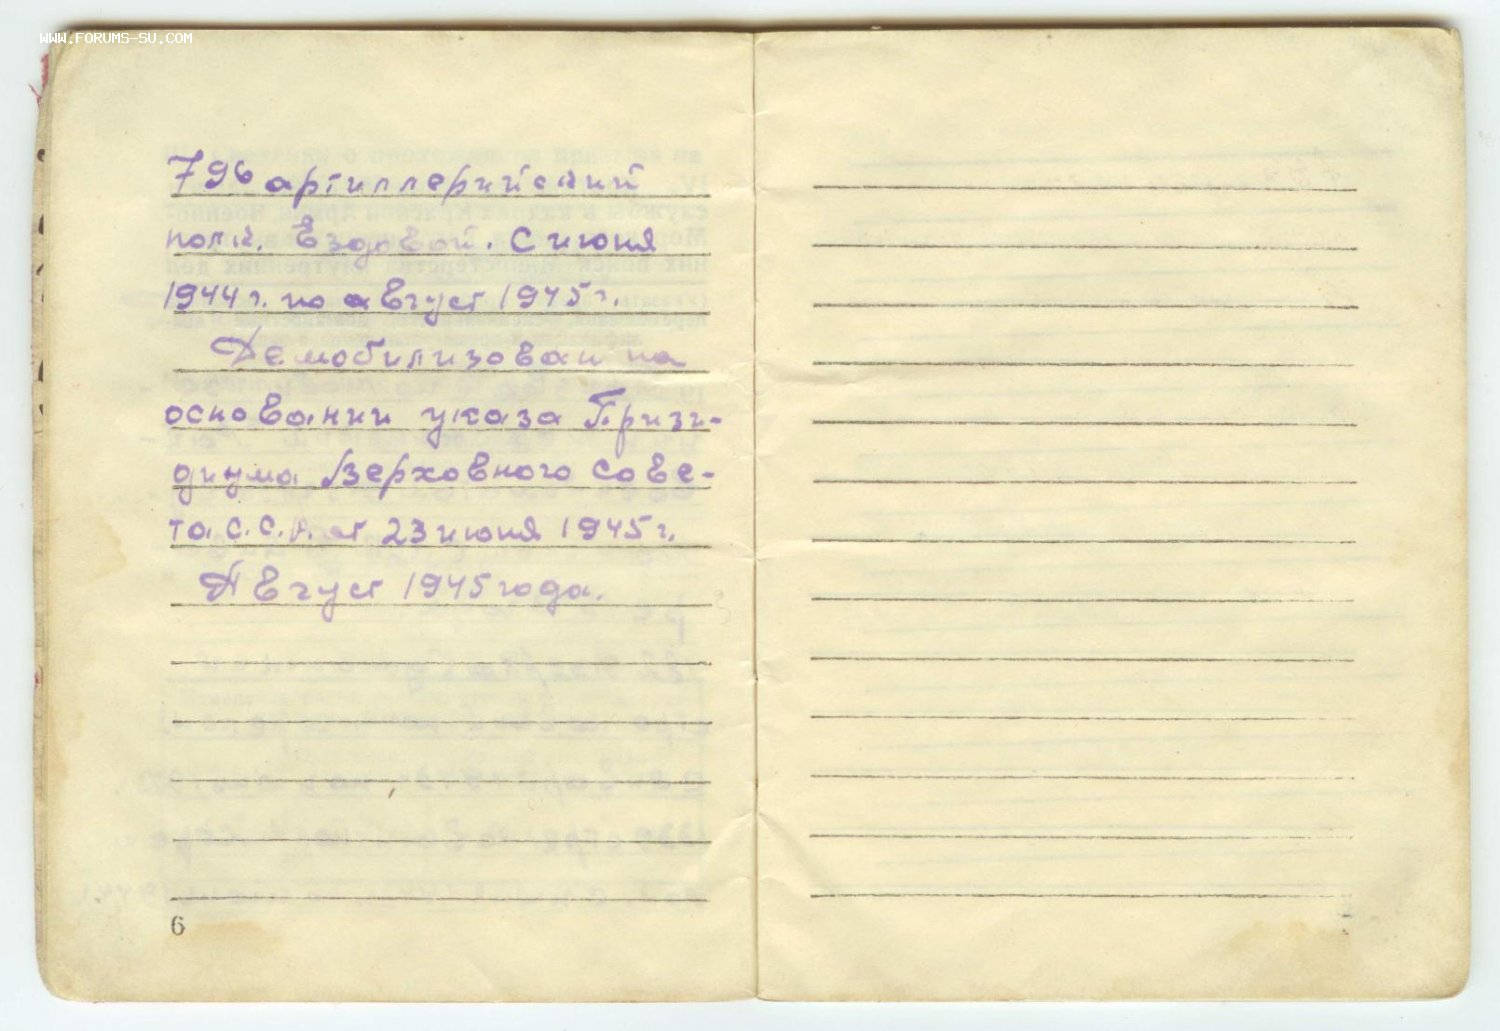 WWW.FORUMS-SU.COM
796 артиллерийский
полк. Ездовой. С июня
1944 г. по август 1945 г.
Демобилизован на
основании указа Призи-
диума Верховного Сове-
та С.С.Р. от 23 июня 1945 г.
Август 1945 года.
6